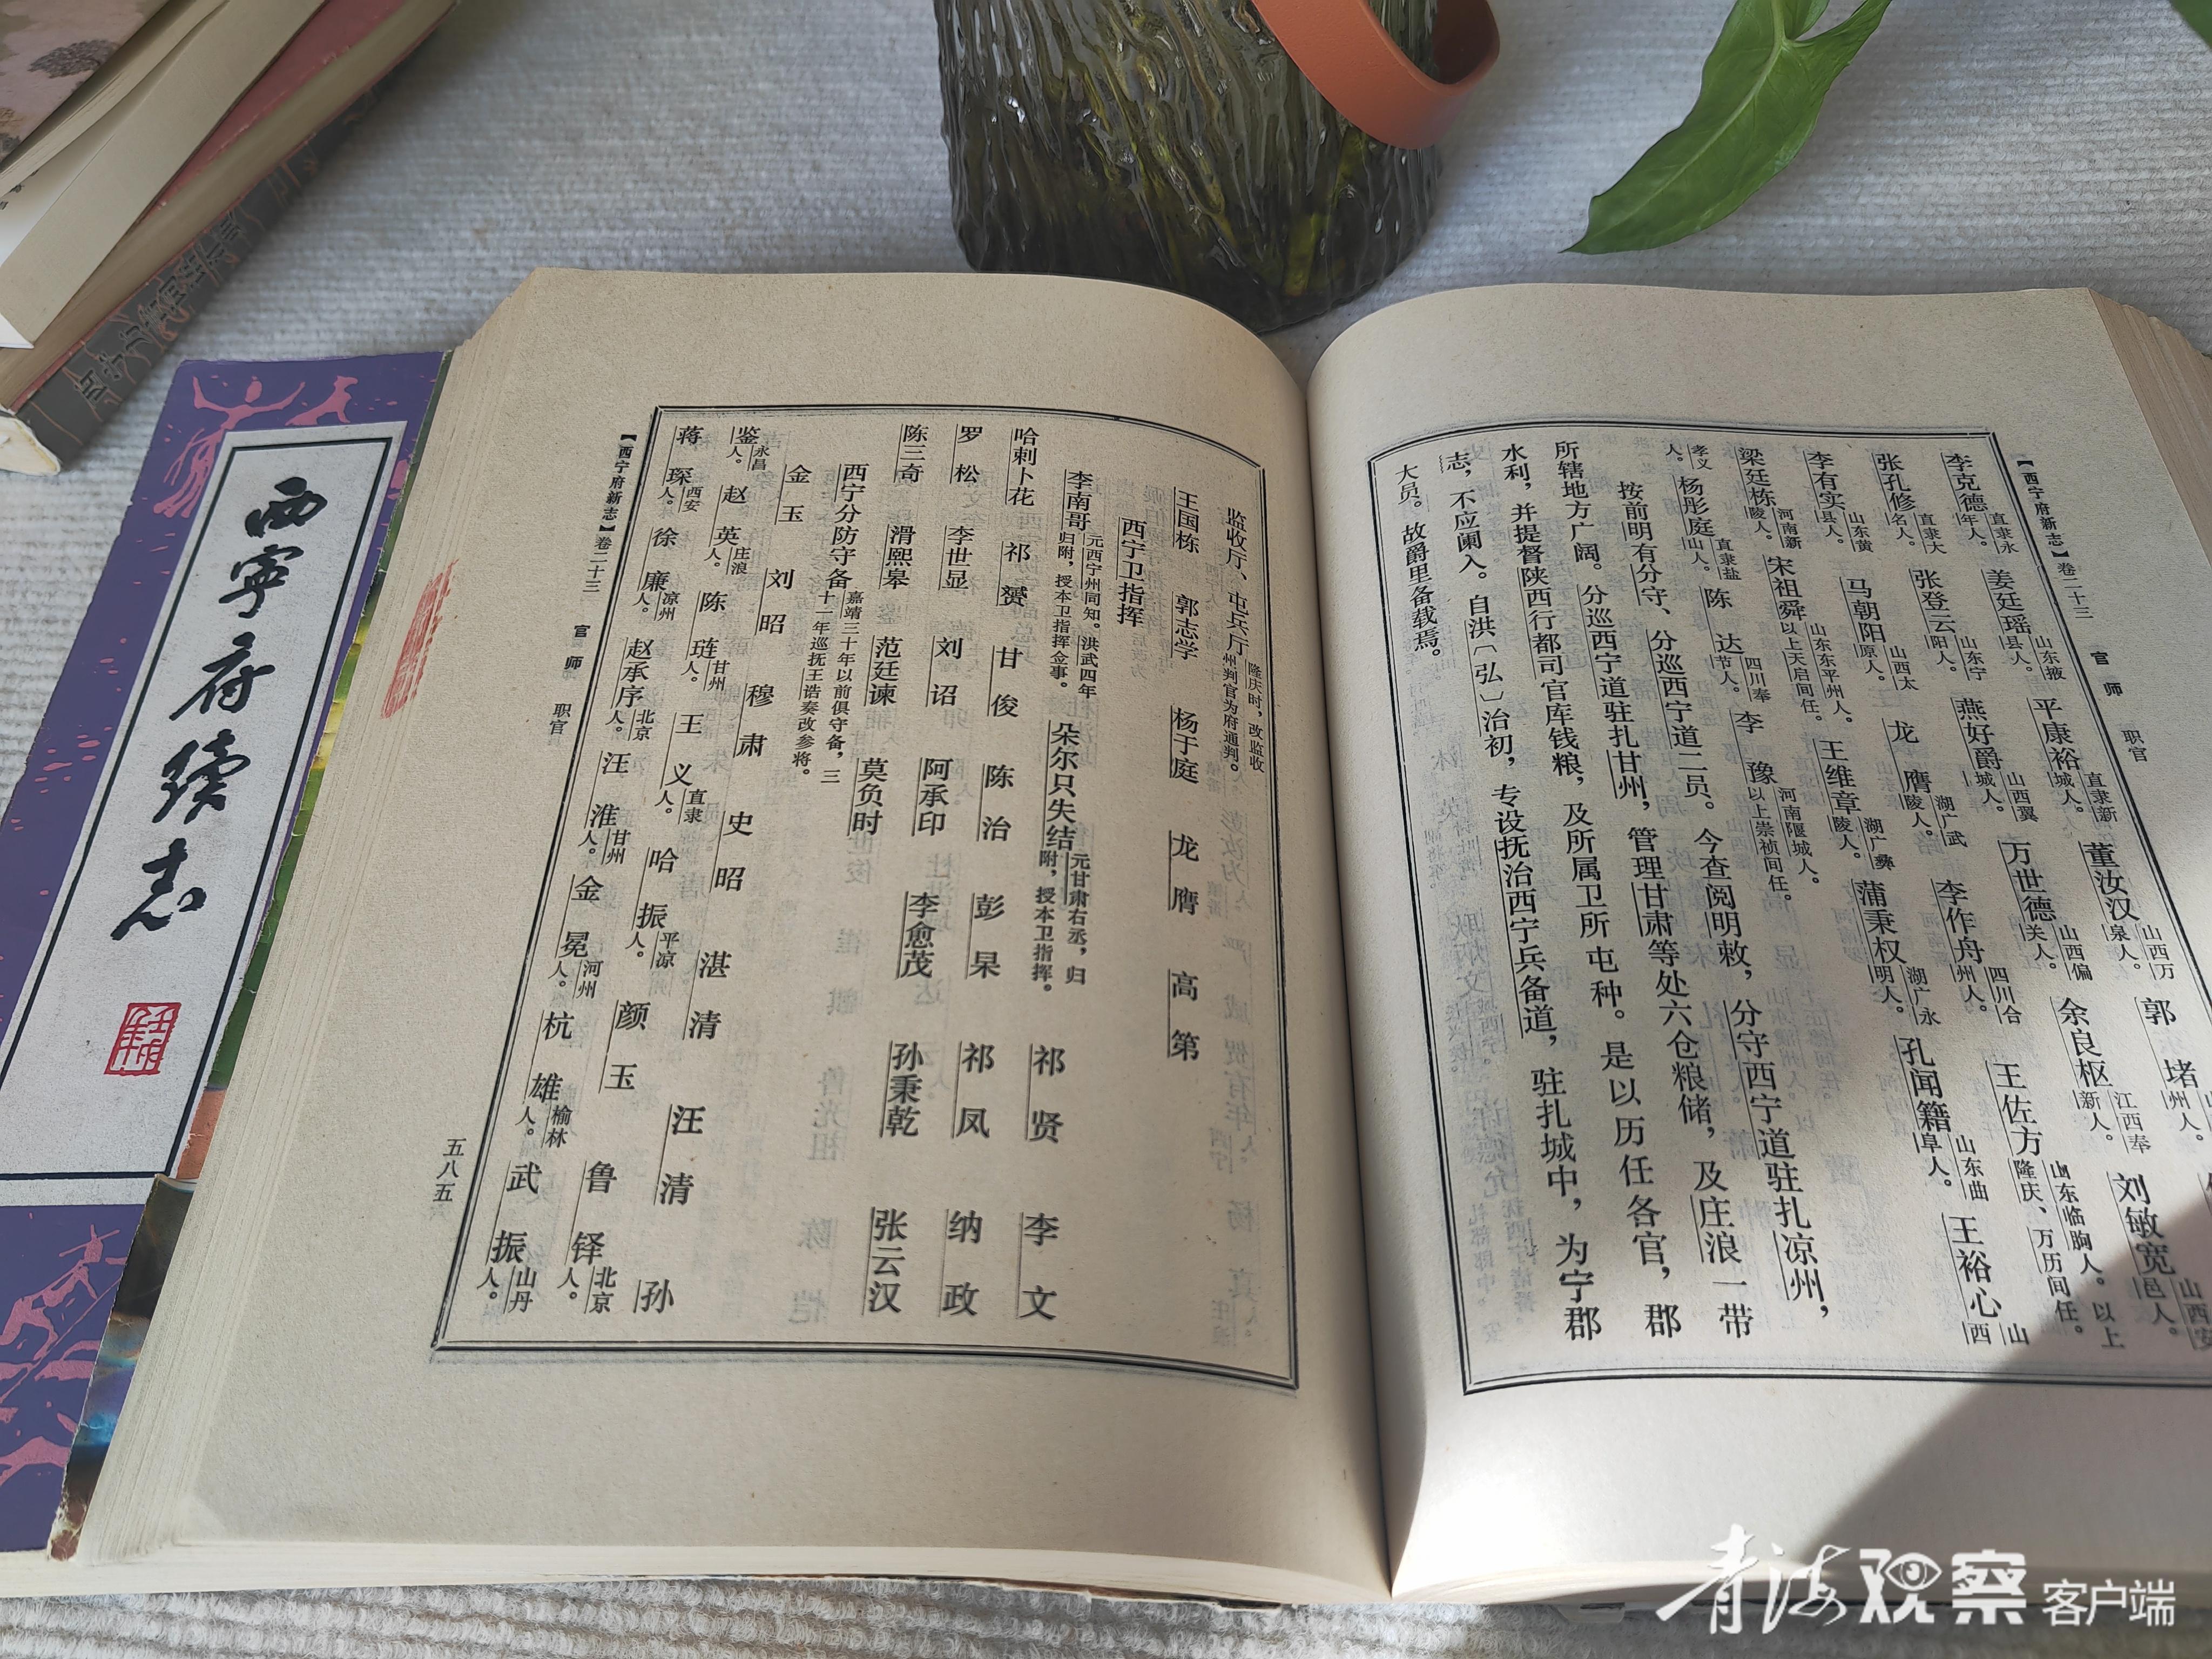 西宁府续志
【西宁府新志】卷二十三 官师 职官
郭堵州人。
刘敏宽邑人。山西安
董汝汉泉人。山西万
余良枢新人。江西奉
山东临朐人。以上隆庆、万历间任。
平康裕城人。直隶新
万世德关人。山西偏
王佐方
李克德年人。直隶永
姜廷瑶县人。山东掖
燕好爵城人。山西翼
李作舟州人。四川合
孔闻籍阜人。山东曲
王裕心
张孔修名人。直隶大
张登云阳人。山东宁
龙膺陵人。湖广武
蒲秉权明人。湖广永
李有实县人。山东黄
马朝阳原人。山西太
王维章陵人。湖广彝
梁廷栋陵人。河南新
宋祖舜山东东平州人。以上天启间任。
李豫河南隁城人。以上崇祯间任。
孝义人。杨彤庭山人。直隶盐
陈达节人。四川奉
按前明有分守、分巡西宁道二员。今查阅明敕，分守西宁道驻扎凉州，
所辖地方广阔。分巡西宁道驻扎甘州，管理甘肃等处六仓粮储，及庄浪一带
水利，并提督陕西行都司官库钱粮，及所属卫所屯种。是以历任各官，郡
志，不应阑入。自洪〔弘〕治初，专设抚治西宁兵备道，驻扎城中，为宁郡
大员。故爵里备载焉。
监收厅、屯兵厅隆庆时，改监收州判官为府通判。
王国栋 郭志学 杨于庭 龙膺 高第
西宁卫指挥
李南哥元西宁州同知。洪武四年归附，授本卫指挥佥事。 朵尔只失结元甘肃右丞，归附，授本卫指挥。
哈剌卜花 祁赟 甘俊 陈治 彭杲 祁贤 李文
罗松 李世显 刘诏 阿承印 李愈茂 祁凤 纳政
陈三奇 滑熙皋 范廷谏 莫负时 孙秉乾 张云汉
西宁分防守备嘉靖三十年以前俱守备，三十一年巡抚王诰奏改参将。
金玉 刘昭 穆肃 史昭 湛清 汪清 孙
鉴永昌人。 赵英庄浪人。 陈琏甘州人。 王义直隶人。 哈振平凉人。 颜玉 鲁铎北京人。
蒋琛西安人。 徐廉凉州人。 赵承序北京人。 汪淮甘州人。 金冕河州人。 杭雄榆林人。 武振山丹人。
【西宁府新志】卷二十三 官师 职官
五八五
青海观察 客户端